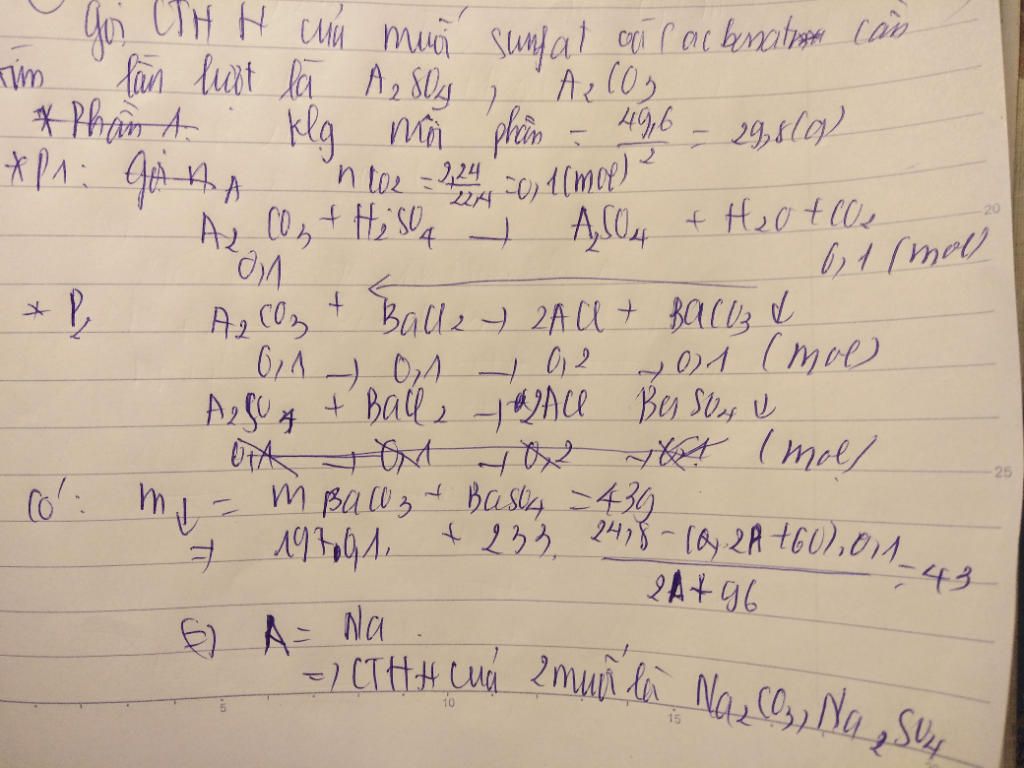 Gọi CTHH của muối sunfat và cacbonat cần
tìm lần lượt là A₂SO₄, A₂CO₃
* Phần 1. Klg mỗi phần = 49,6/2 = 29,8(g)
* P1: Gọi n A nCO₂ = 2,24/22,4 = 0,1(mol)
A₂CO₃ + H₂SO₄ → A₂SO₄ + H₂O + CO₂
0,1 ← 0,1 (mol)
* P₂ A₂CO₃ + BaCl₂ → 2ACl + BaCO₃ ↓
0,1 → 0,1 → 0,2 → 0,1 (mol)
A₂SO₄ + BaCl₂ → 2ACl BaSO₄ ↓
0,1 → 0,1 → 0,2 → 0,1 (mol)
Có: m↓ = m BaCO₃ + BaSO₄ = 43g
⇒ 197.0,1. + 233. (24,8 - (2A + 60).0,1)/(2A + 96) = 43
⇔ A = Na.
⇒ CTHH của 2 muối là Na₂CO₃, Na₂SO₄